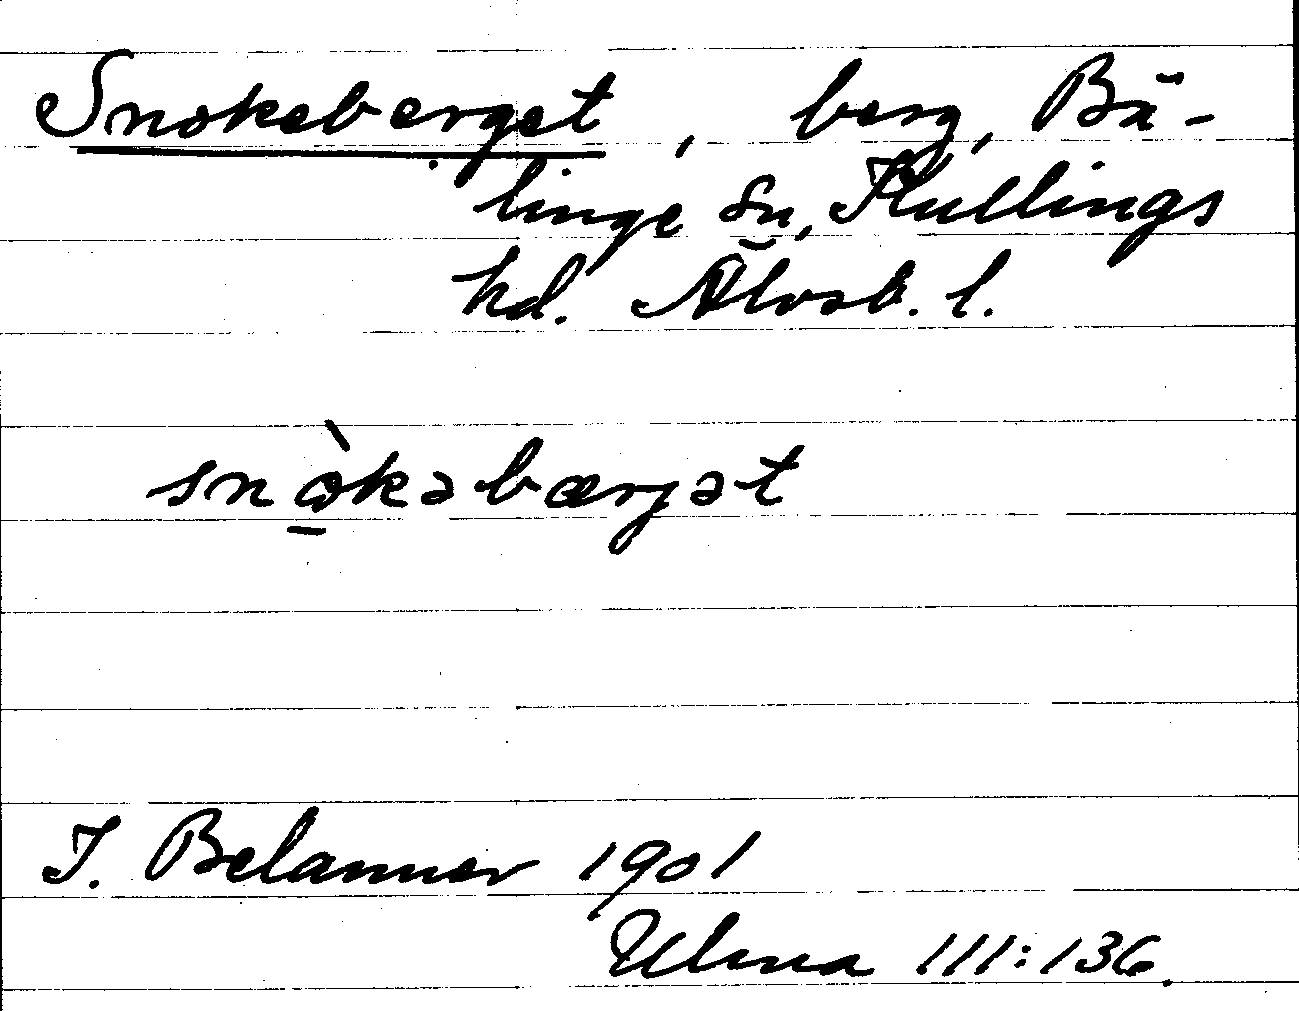 Snokeberget, berg, Bä-
linge sn, Kullings
hd. Älvsb. l.
snò̱kəbærjət
J. Belanner 1901
Ulma 111:136.